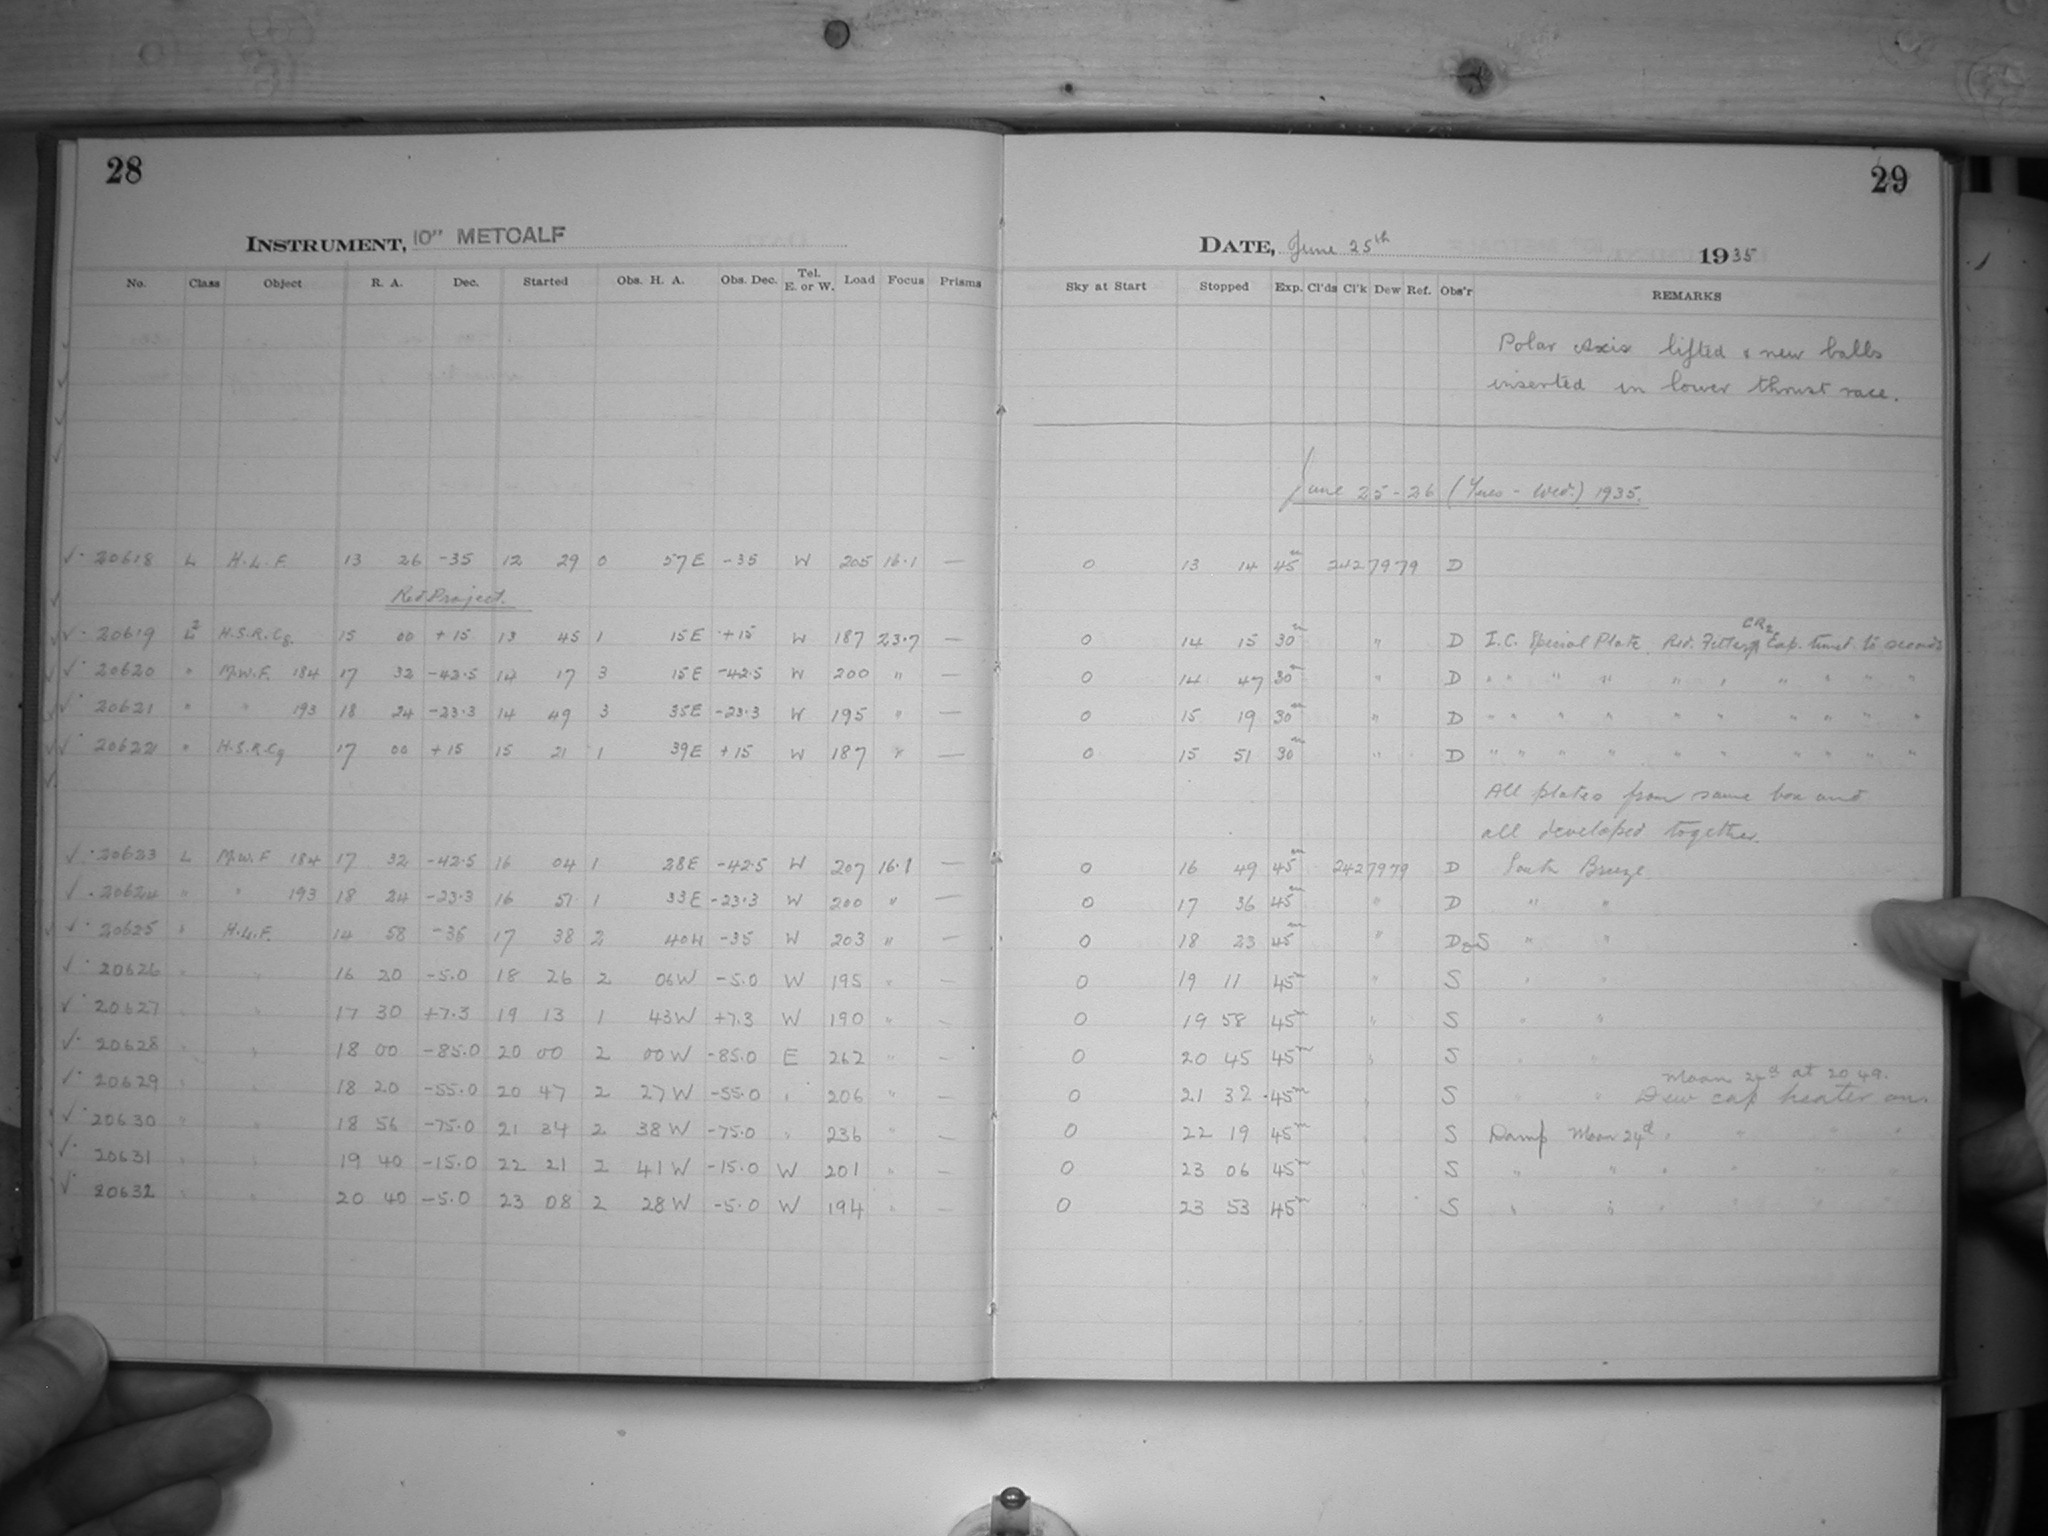 28
INSTRUMENT, 10" METCALF
No. Class Object R. A. Dec. Started Obs. H. A. Obs. Dec. Tel. E. or W. Load Focus Prisms
20618 L H.L.F. 13 26 -35 12 29 0 57E -35 W 205 16.1 —
Red Project.
20619 L² H.S.R.Cg. 15 00 +15 13 45 1 15E +15 W 187 23.7 —
20620 " M.W.F. 184 17 32 -42.5 14 17 3 15E -42.5 W 200 " —
20621 " " 193 18 24 -23.3 14 49 3 35E -23.3 W 195 " —
20622 " H.S.R.Cg 17 00 +15 15 21 1 39E +15 W 187 " —
20623 L M.W.F 184 17 32 -42.5 16 04 1 28E -42.5 W 207 16.1 —
20624 " " 193 18 24 -23.3 16 51 1 33E -23.3 W 200 " —
20625 " H.L.F. 14 58 -35 17 38 2 40W -35 W 203 " —
20626 " " 16 20 -5.0 18 26 2 06W -5.0 W 195 " —
20627 " " 17 30 +7.3 19 13 1 43W +7.3 W 190 " —
20628 " " 18 00 -85.0 20 00 2 00W -85.0 E 262 " —
20629 " " 18 20 -55.0 20 47 2 27W -55.0 " 206 " —
20630 " " 18 56 -75.0 21 34 2 38W -75.0 " 236 " —
20631 " " 19 40 -15.0 22 21 2 41W -15.0 W 201 " —
20632 " " 20 40 -5.0 23 08 2 28W -5.0 W 194 " —
29
DATE, June 25th 1935
Sky at Start Stopped Exp. Cl'ds Cl'k Dew Ref. Obs'r REMARKS
Polar Axis lifted & new balls
inserted in lower thrust race.
June 25-26 (Tues - Wed.) 1935.
0 13 14 45m 2427979 D
0 14 15 30m " D I.C. Special Plate. Red. Filter CR2 Exp. timed to seconds
0 14 47 30m " D " " " " " " " " " "
0 15 19 30m " D " " " " " " " " " "
0 15 51 30m " D " " " " " " " " " "
All plates from same box and
all developed together.
0 16 49 45m 2427979 D South Breeze
0 17 36 45m " D " "
0 18 23 45m " D&S " "
0 19 11 45m " S " "
0 19 58 45m " S " "
0 20 45 45m " S " "
Moon 24d at 20 49.
0 21 32 45m " S " " Dew cap heater on
0 22 19 45m " S Damp Moon 24d " " " "
0 23 06 45m " S " " " " " "
0 23 53 45m " S " " " " " "